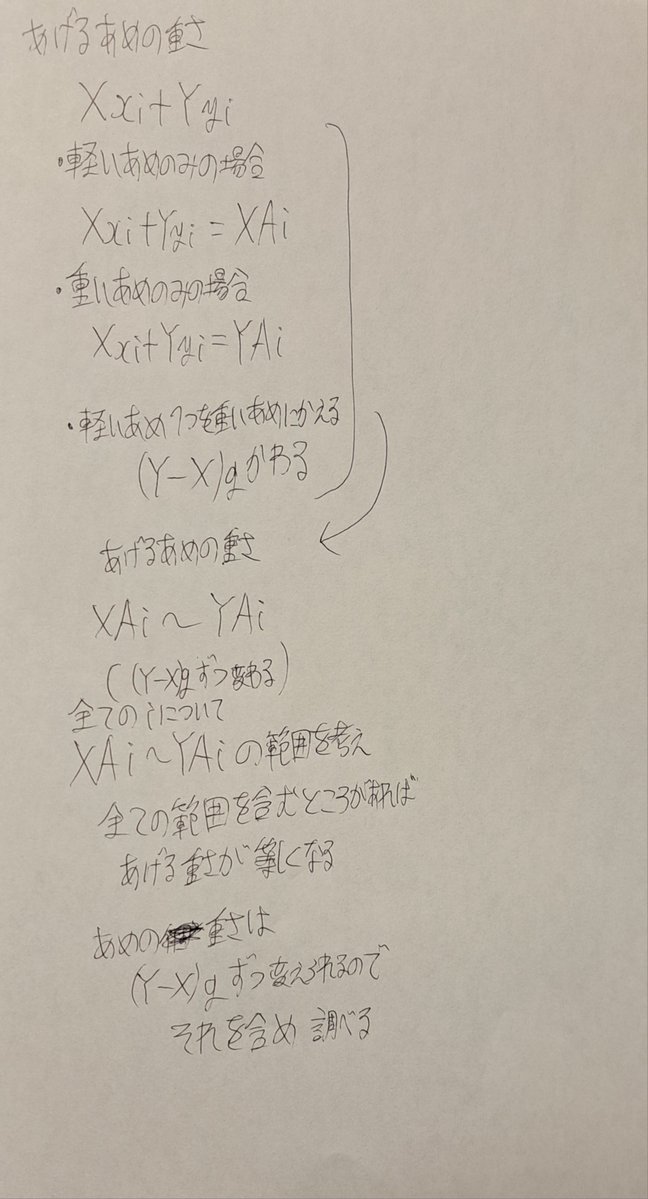 あげるあめの重さ
Xxi+Yyi
・軽いあめのみの場合
Xxi+Yyi=XAi
・重いあめのみの場合
Xxi+Yyi=YAi
・軽いあめ1つを重いあめにかえる
(Y-X)gかわる
あげるあめの重さ
XAi～YAi
((Y-X)gずつ変わる)
全てのiについて
XAi～YAiの範囲を考え
全ての範囲を含むところがあれば
あげる重さが等しくなる
あめの重さは
(Y-X)gずつ変えられるので
それを含め調べる